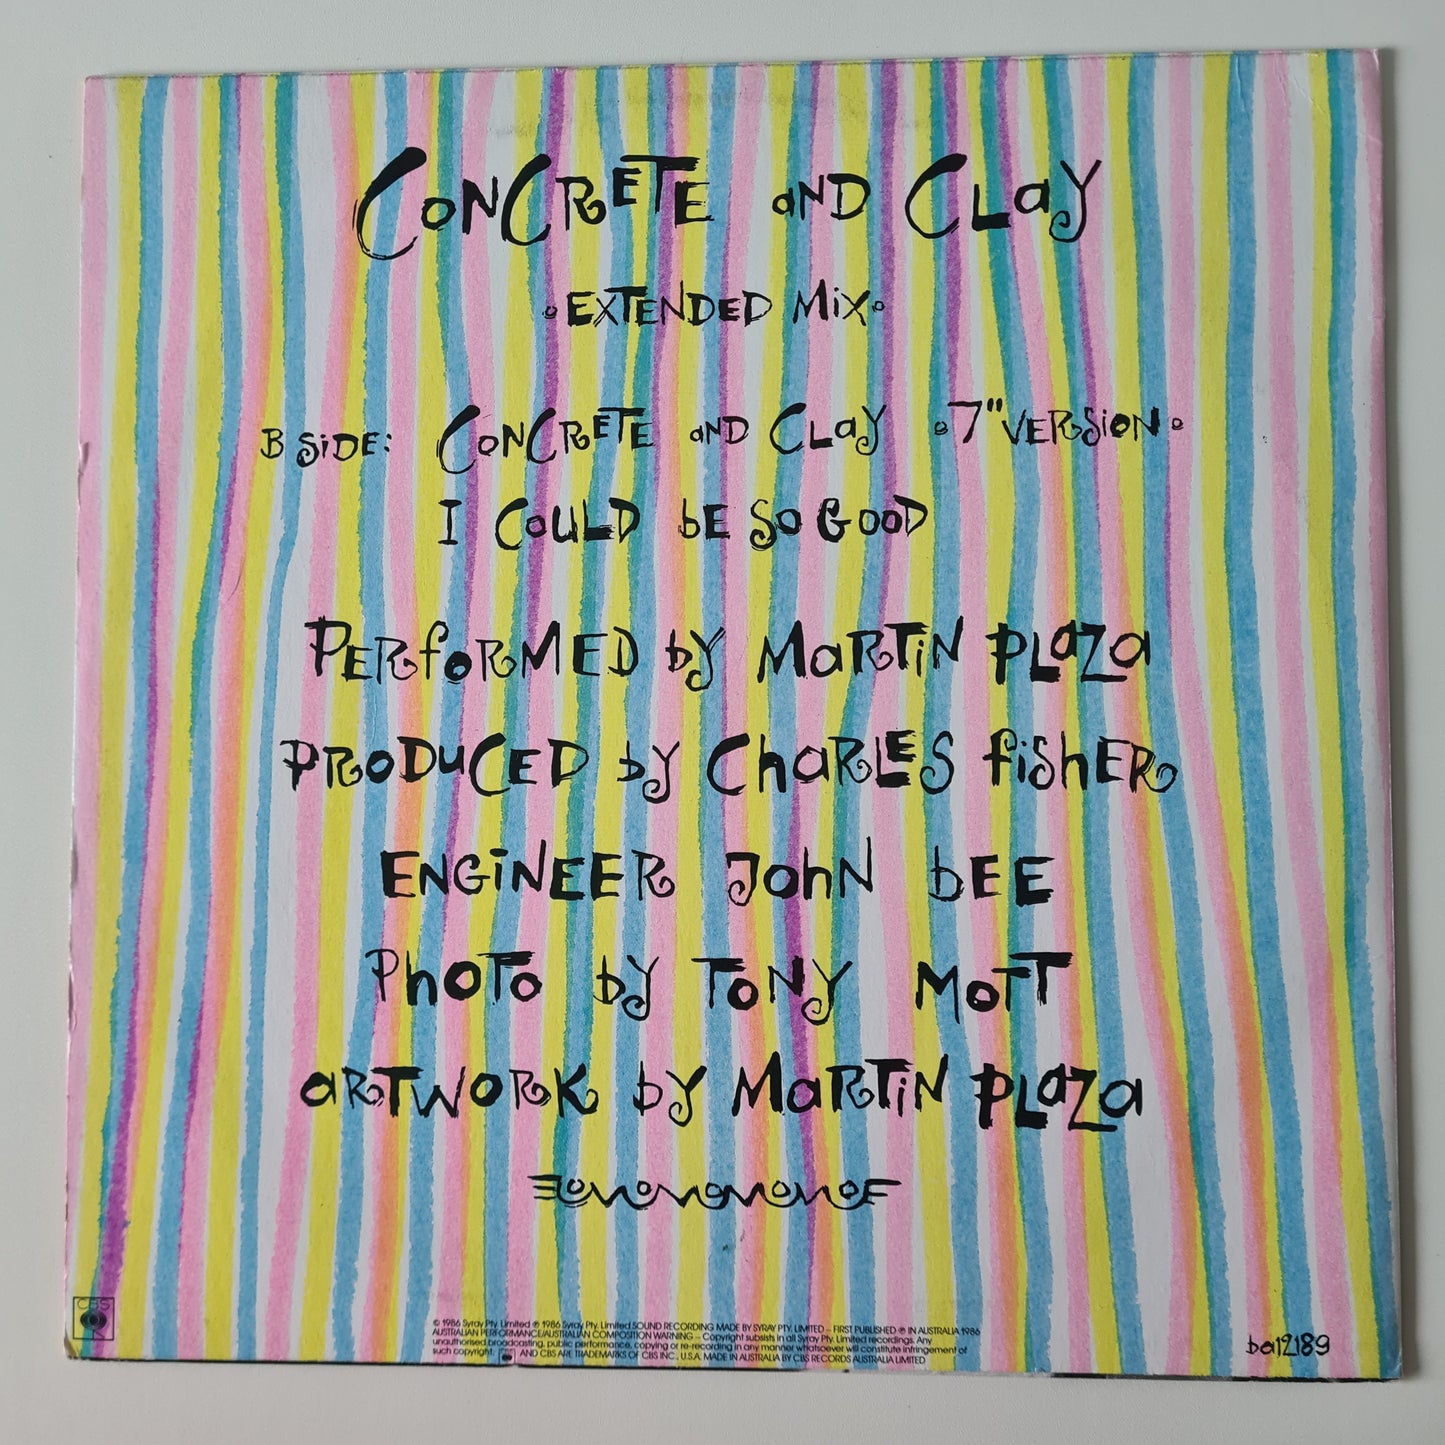 CONCRETE AND CLAY
•EXTENDED MIX•
B SIDE: CONCRETE AND CLAY •7" VERSION•
I COULD BE SO GOOD
PERFORMED by MARTIN PLAZA
PRODUCED by CHARLES FISHER
ENGINEER JOHN BEE
PHOTO by TONY MOTT
ARTWORK by MARTIN PLAZA
CBS
© 1986 Syray Pty. Limited ℗ 1986 Syray Pty. Limited SOUND RECORDING MADE BY SYRAY PTY. LIMITED – FIRST PUBLISHED ℗ IN AUSTRALIA 1986
AUSTRALIAN PERFORMANCE/AUSTRALIAN COMPOSITION WARNING – Copyright subsists in all Syray Pty. Limited recordings. Any
unauthorised broadcasting, public performance, copying or re-recording in any manner whatsoever will constitute infringement of
such copyright. AND CBS ARE TRADEMARKS OF CBS INC., U.S.A. MADE IN AUSTRALIA BY CBS RECORDS AUSTRALIA LIMITED
ba12189